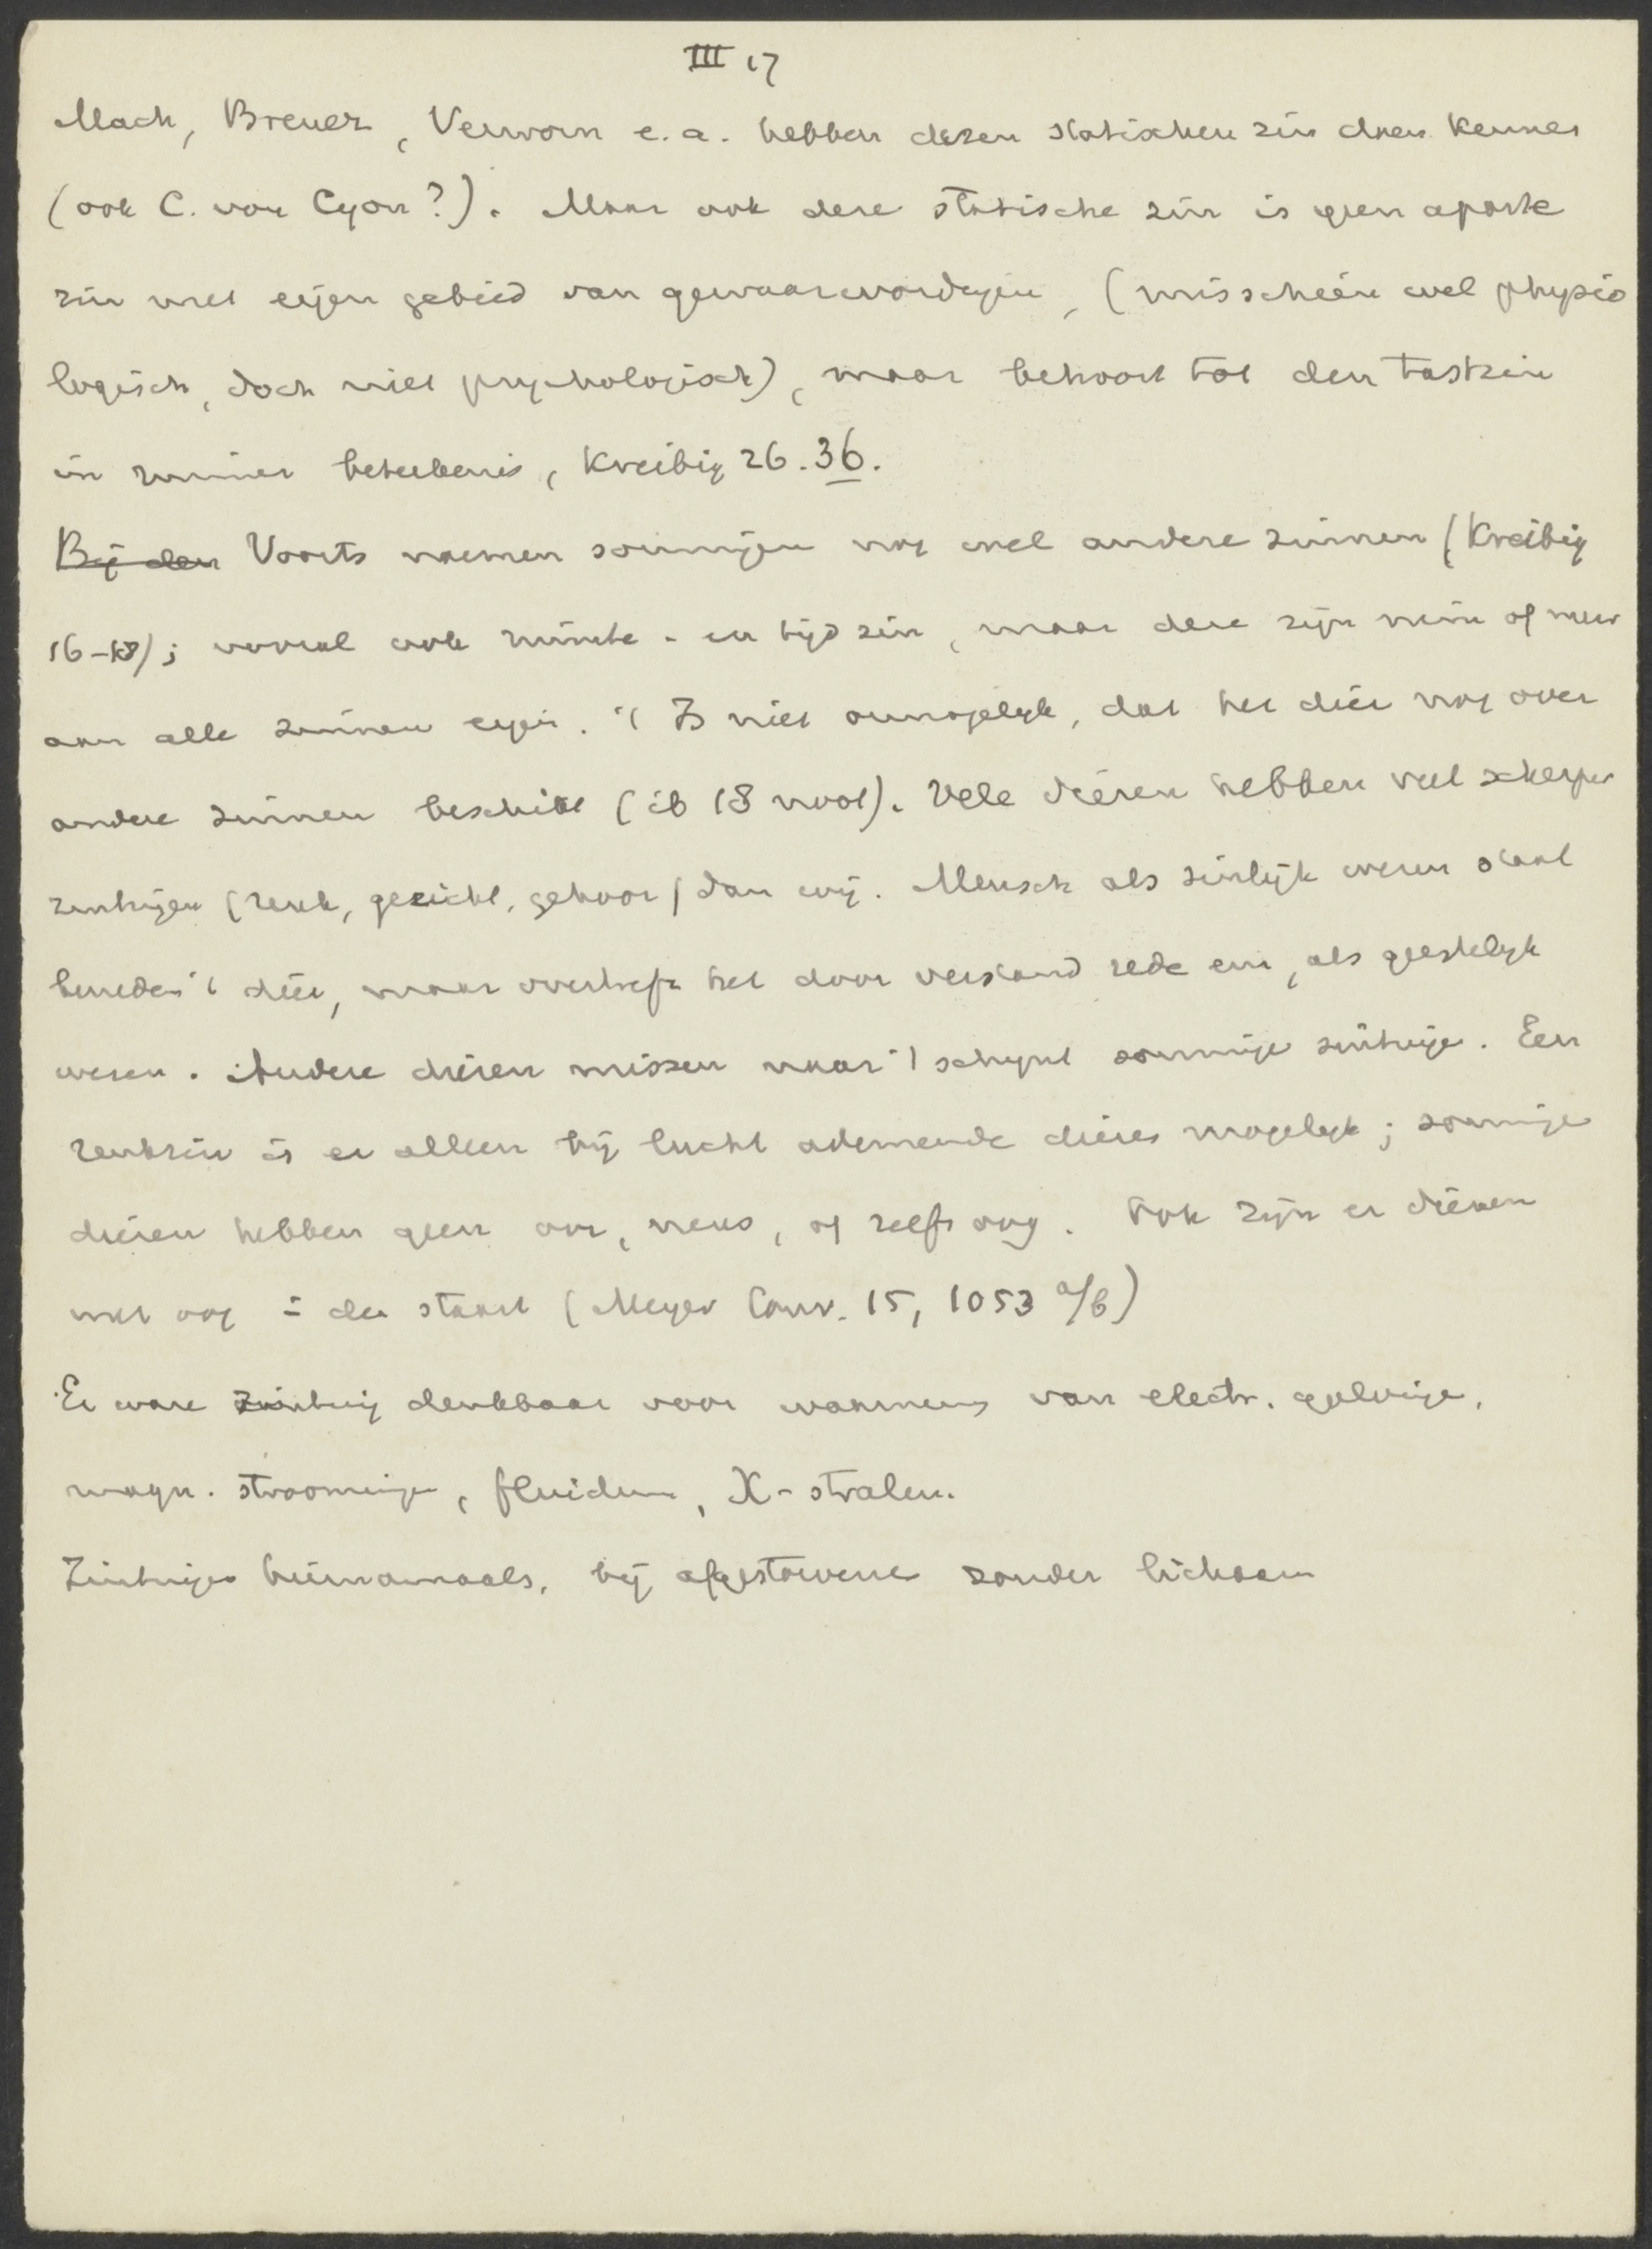 III 17
Mach, Breuer, Verworn e.a. hebben dezen statischen zin doen kennen
(ook C. von Cyon?). Maar ook deze statische zin is geen aparte
zin met eigen gebied van gewaarwordingen, (misschien wel physio
logisch, doch niet psychologisch), maar behoort tot den tastzin
in ruimer beteekenis, Kreibig 26.36.
Bij den Voorts noemen sommigen nog wel andere zinnen (Kreibig
16-18); vooral ook ruimte- en tijdzin, maar deze zijn min of meer
aan alle zinnen eigen. 't Is niet onmogelijk, dat het dier nog over
andere zinnen beschikt (ib 18 noot). Vele dieren hebben veel scherper
zintuigen (reuk, gezicht, gehoor) dan wij. Mensch als zinlijk wezen staat
beneden 't dier, maar overtreft het door verstand rede enz, als geestelijk
wezen. Andere dieren missen naar 't schijnt sommige zintuige. Een
reukzin is er alleen bij lucht ademende dieren mogelijk; sommige
dieren hebben geen oor, neus, of zelfs oog. Ook zijn er dieren
met oog in den staart (Meyer Conv. 15, 1053 a/b)
Er ware zintuig denkbaar voor waarneming van electr. golvinge,
magn. stroominge, fluidum, X-stralen.
Zintuigen hiernamaals, bij afgestorvene zonder lichaam